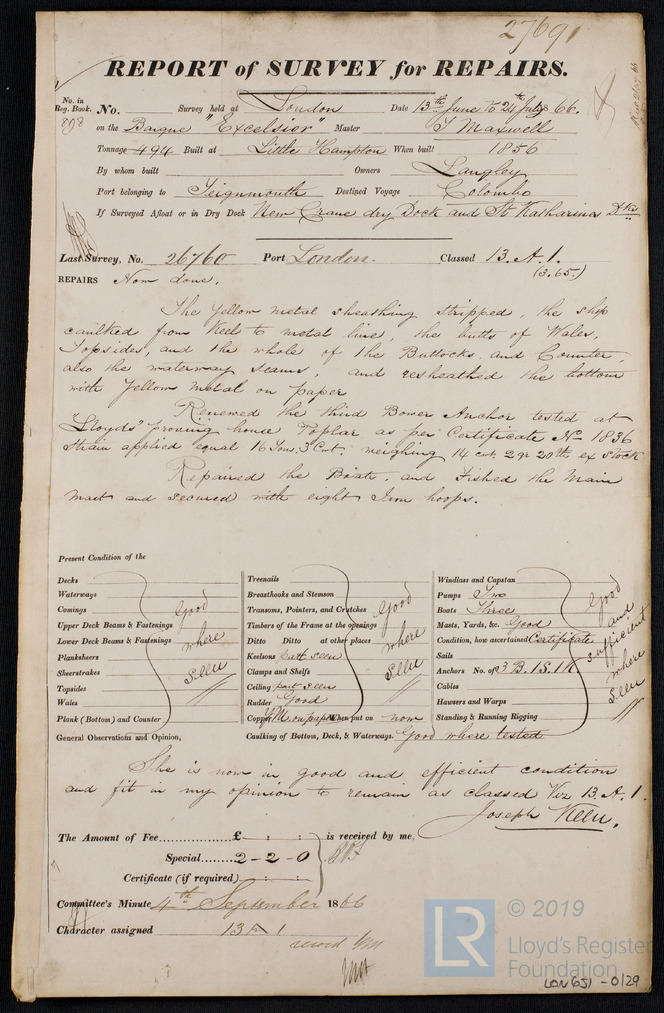 27691
REPORT of SURVEY for REPAIRS.
No. in Reg. Book. No. Survey held at London Date 13th June to 24th July 1866.
898 on the Barque "Excelsior" Master J Maxwell
Tonnage 494 Built at Little Hampton When built 1856
By whom built Owners Langley
Port belonging to Teignmouth Destined Voyage Colombo
If Surveyed Afloat or in Dry Dock New Crane dry Dock and St Katharines Dks
Last Survey, No. 26760 Port London. Classed 13. A. 1.
(3.65.)
REPAIRS Now done.
The Yellow metal sheathing stripped, the ship
caulked from Keel to metal line, the butts of Wales,
Topsides, and the whole of the Buttocks and Counter,
also the waterway seams, and resheathed the bottom
with Yellow Metal on paper
Renewed the third Bower Anchor tested at
"Lloyds" proving house Poplar as per Certificate No 1836
Strain applied equal 16 Tons. 3 Cwt, weighing 14 cwt 2 qr 20 lb ex Stock
Repaired the Boats, and Fished the Main
mast and secured with eight Iron hoops.
Present Condition of the
Decks
Waterways
Comings
Upper Deck Beams & Fastenings
Lower Deck Beams & Fastenings
Planksheers
Sheerstrakes
Topsides
Wales
Plank (Bottom) and Counter
Good where seen
Treenails
Breasthooks and Stemson
Transoms, Pointers, and Crutches
Timbers of the Frame at the openings
Ditto Ditto at other places
Keelsons part seen
Clamps and Shelfs
Ceiling part seen
Rudder Good
Copper Y.M. on paper When put on now
Good where seen
Windlass and Capstan
Pumps Two
Boats Three
Masts, Yards, &c. Good
Condition, how ascertained Certificate
Sails
Anchors No. of 3 B. 1 S. 1 K.
Cables
Hawsers and Warps
Standing & Running Rigging
Good and sufficient where seen
General Observations and Opinion, Caulking of Bottom, Deck, & Waterways. Good where tested
She is now in good and efficient condition
and fit in my opinion to remain as classed Viz 13. A. 1.
Joseph Keen.
The Amount of Fee......£ : : is received by me,
Special......2-2-0
Certificate (if required) : :
Committee's Minute 4th September 1866
Character assigned 13 A 1
record
© 2019
LR
Lloyd's Register
Foundation
LON 651 - 0129